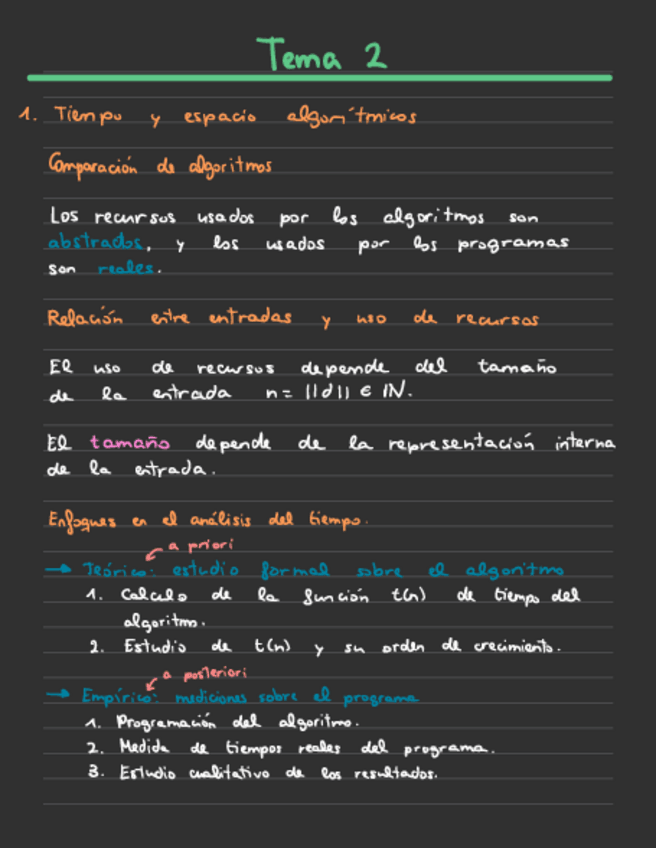 Tema 2
1. Tiempo y espacio algorítmicos
Comparación de algoritmos
Los recursos usados por los algoritmos son
abstractos, y los usados por los programas
son reales.
Relación entre entradas y uso de recursos
El uso de recursos depende del tamaño
de la entrada n = ||d|| ∈ IN.
El tamaño depende de la representación interna
de la entrada.
Enfoques en el análisis del tiempo.
a priori
→ Teórico: estudio formal sobre el algoritmo
1. Calculo de la función t(n) de tiempo del
algoritmo.
2. Estudio de t(n) y su orden de crecimiento.
a posteriori
→ Empírico: mediciones sobre el programa
1. Programación del algoritmo.
2. Medida de tiempos reales del programa.
3. Estudio cualitativo de los resultados.